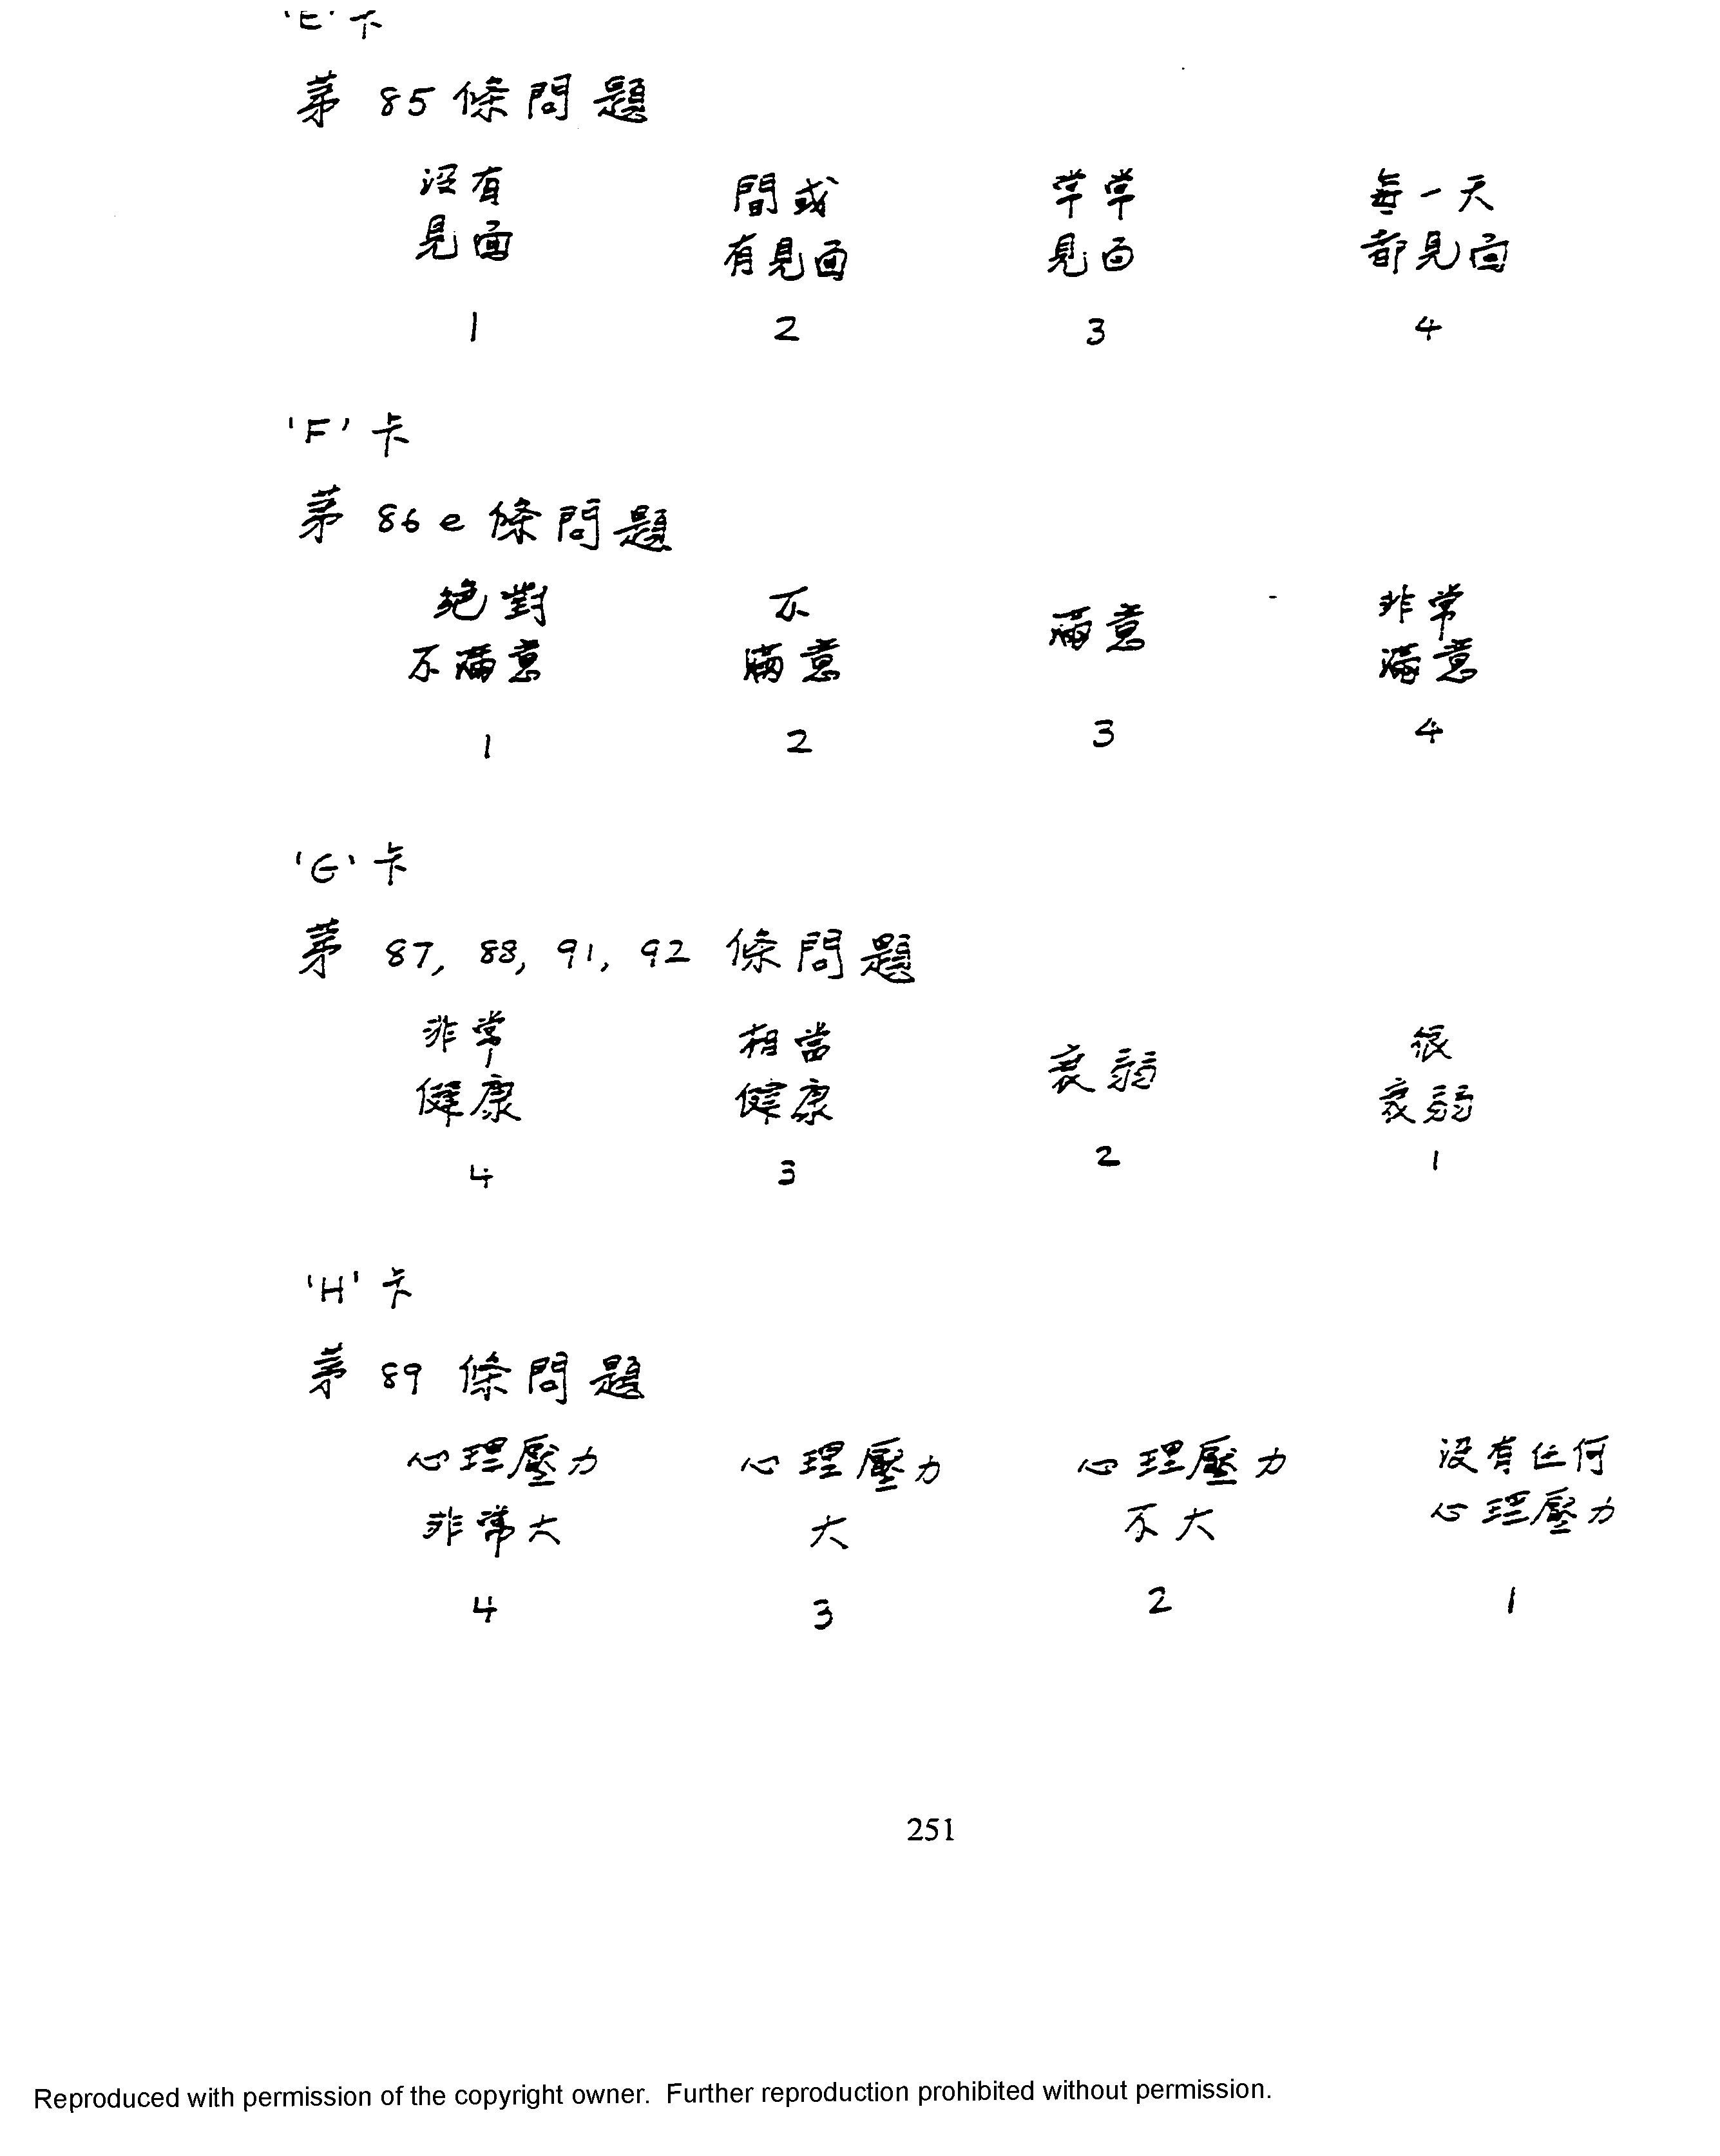 'E' 卡
第 85 條問題
沒有 間或 常常 每一天
見面 有見面 見面 都見面
1 2 3 4
'F' 卡
第 86e 條問題
絕對 不 滿意 非常
不滿意 滿意 滿意
1 2 3 4
'G' 卡
第 87, 88, 91, 92 條問題
非常 相當 衰弱 很
健康 健康 衰弱
4 3 2 1
'H' 卡
第 89 條問題
心理壓力 心理壓力 心理壓力 沒有任何
非常大 大 不大 心理壓力
4 3 2 1
251
Reproduced with permission of the copyright owner. Further reproduction prohibited without permission.